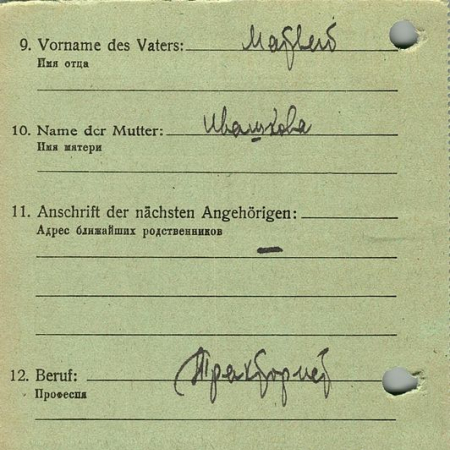 9. Vorname des Vaters: Матвей
Имя отца
10. Name der Mutter: Ивашкова
Имя матери
11. Anschrift der nächsten Angehörigen:
Адрес ближайших родственников
—
12. Beruf: Тракторист
Професия